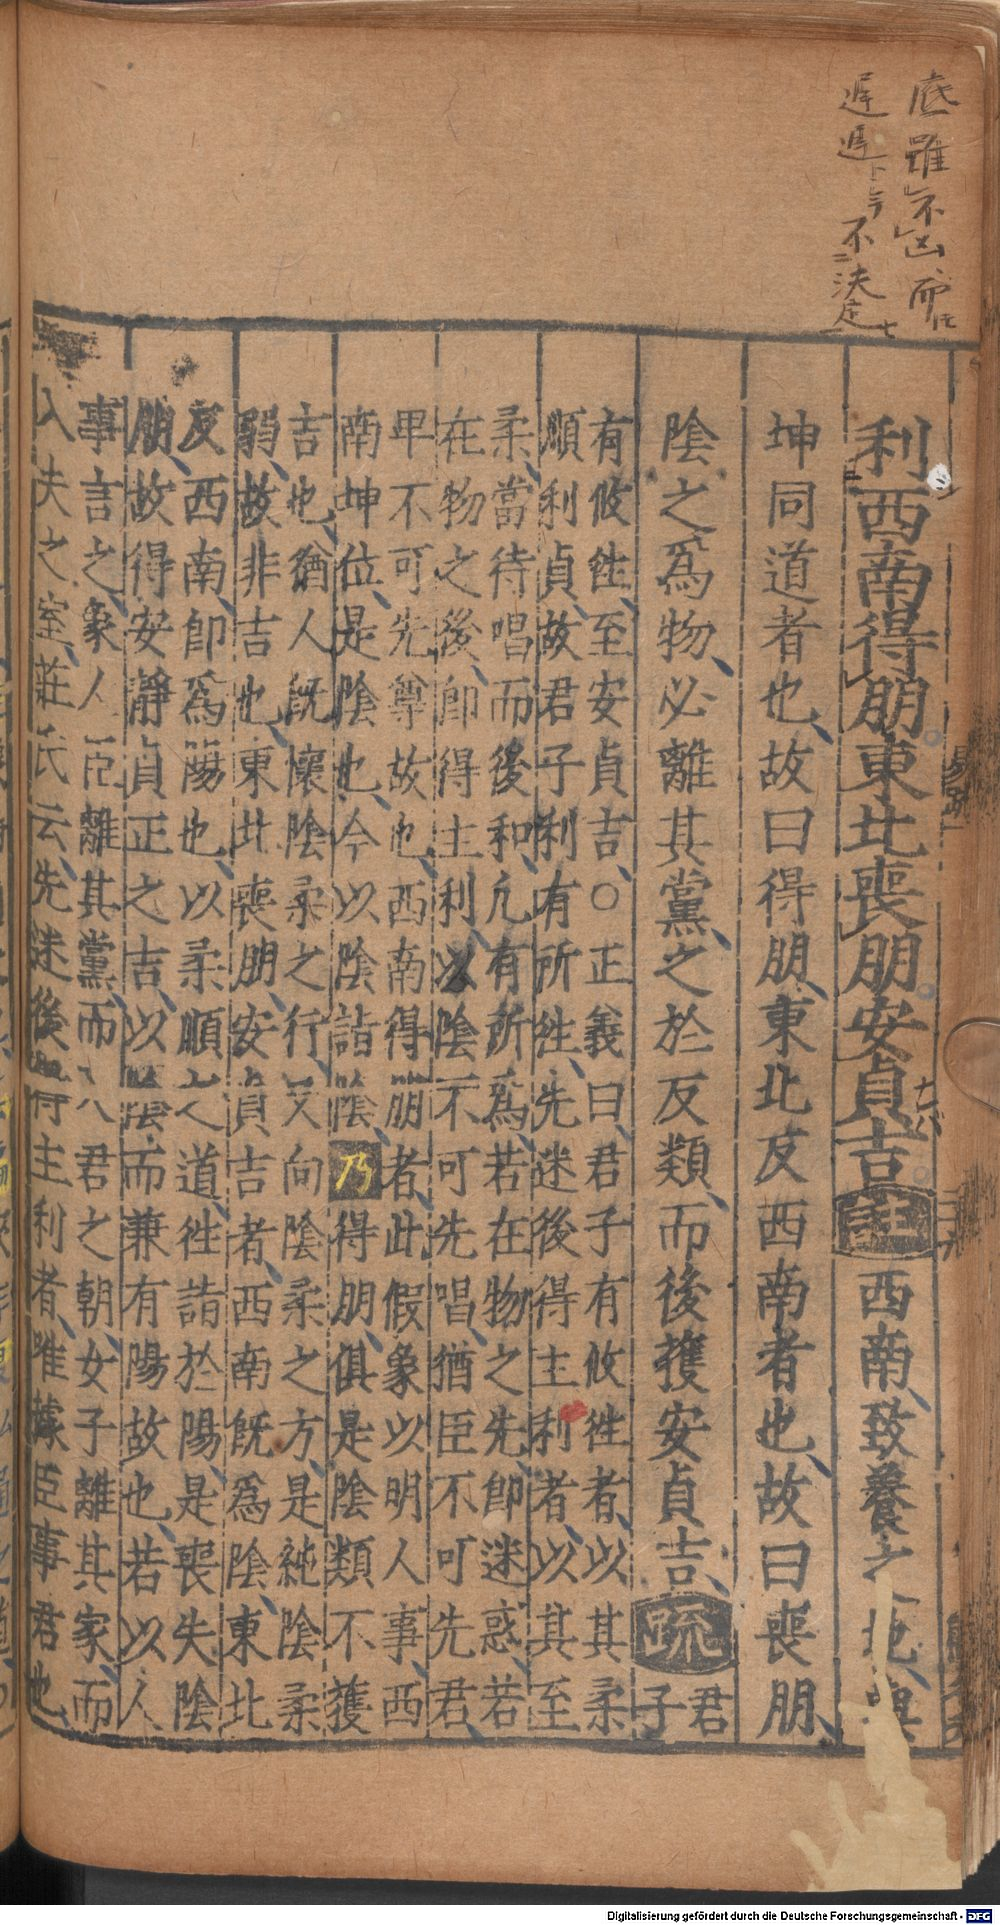 底 雖 不 凶 而
遅 遅 下 今 不 決定
利西南得朋東北喪朋安貞吉註西南致養之地與
坤同道者也故曰得朋東北反西南者也故曰喪朋
陰之爲物必離其黨之於反類而後獲安貞吉疏君子
有攸徃至安貞吉○正義曰君子有攸徃者以其柔
順利貞故君子利有所徃先迷後得主利者以其至
柔當待唱而後和凢有所爲若在物之先卽迷惑若
在物之後卽得主利以陰不可先唱猶臣不可先君
甲不可先尊故也西南得朋者此假象以明人事西
南坤位是陰也今以陰詣陰乃得朋俱是陰類不獲
吉也猶人旣懷陰柔之行又向陰柔之方是純陰柔
弱故非吉也東北喪朋安貞吉者西南旣爲陰東北
反西南卽爲陽也以柔順之道徃詣於陽是喪失陰
朋故得安靜貞正之吉以陰而兼有陽故也若以人
事言之象人臣離其黨而入君之朝女子離其家而
入夫之室莊氏云先迷後得主利者唯據臣事君也
Digitalisierung gefördert durch die Deutsche Forschungsgemeinschaft - DFG